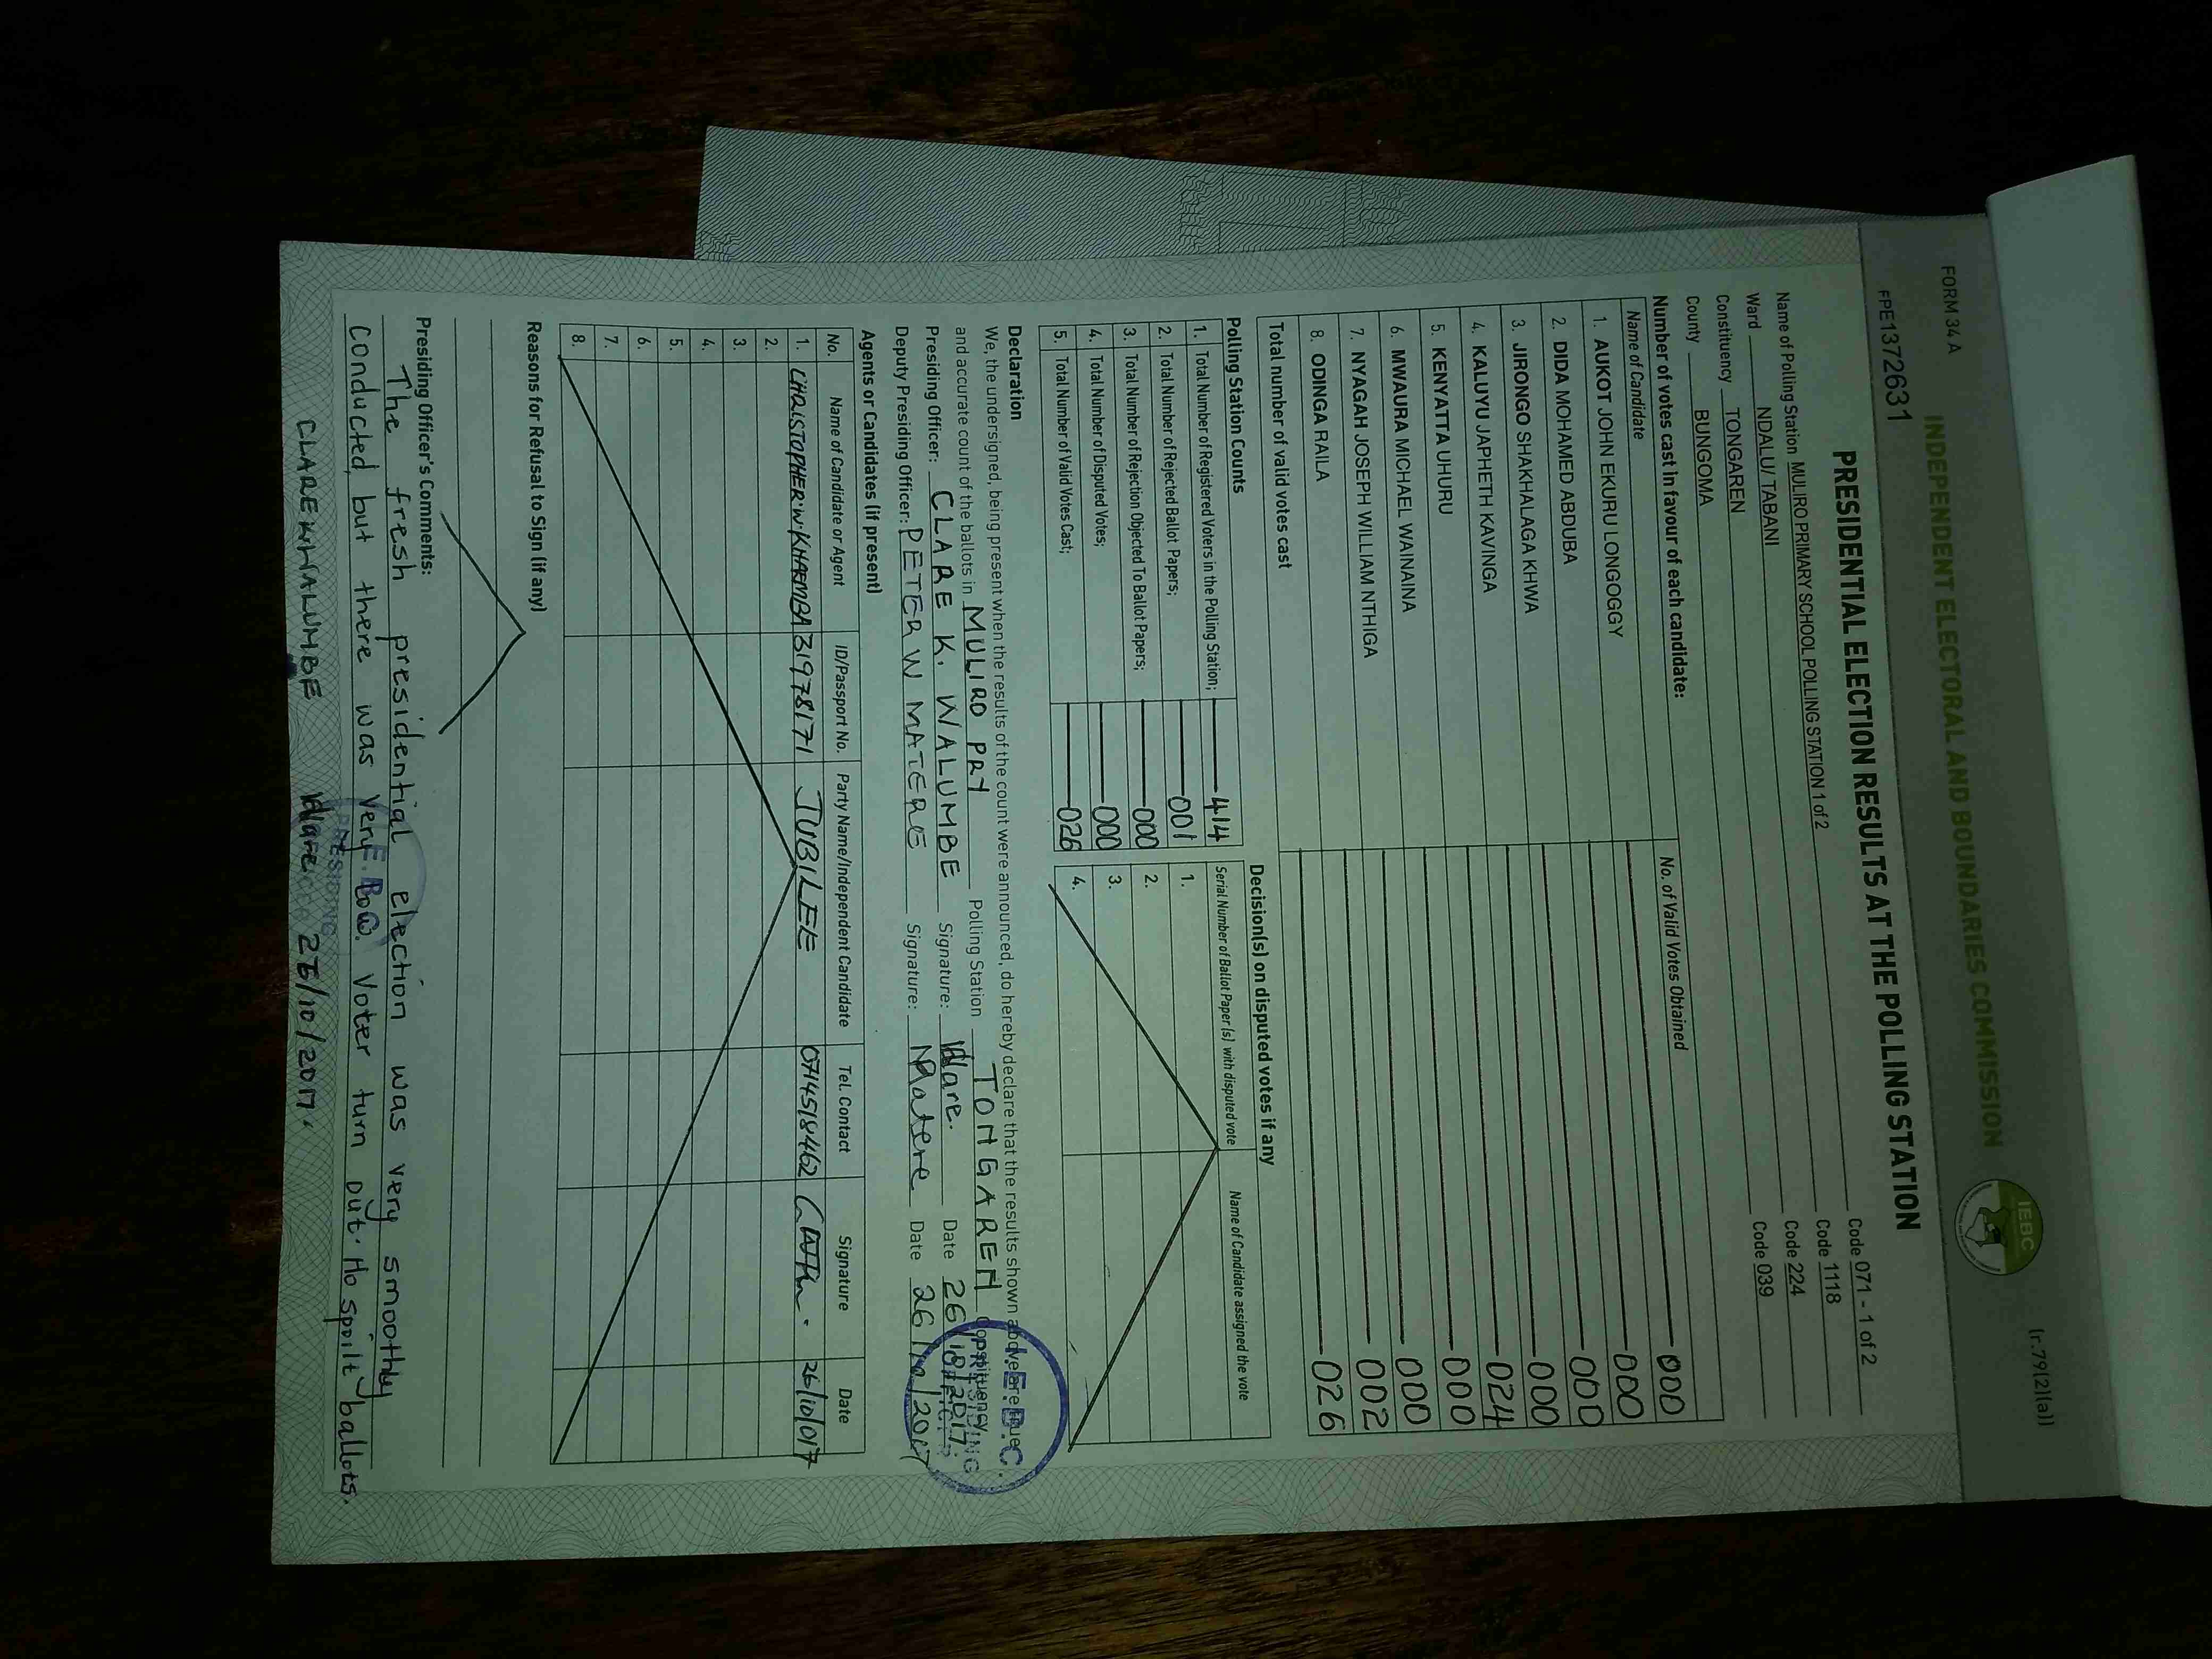 FORM 34 A
(r.79(2)(a))
INDEPENDENT ELECTORAL AND BOUNDARIES COMMISSION
IEBC
FPE1372631
PRESIDENTIAL ELECTION RESULTS AT THE POLLING STATION
Name of Polling Station MULIRO PRIMARY SCHOOL POLLING STATION 1 of 2 Code 071 - 1 of 2
Ward NDALU/ TABANI Code 1118
Constituency TONGAREN Code 224
County BUNGOMA Code 039
Number of votes cast in favour of each candidate:
Name of Candidate No. of Valid Votes Obtained
1. AUKOT JOHN EKURU LONGOGGY 000
2. DIDA MOHAMED ABDUBA 000
3. JIRONGO SHAKHALAGA KHWA 000
4. KALUYU JAPHETH KAVINGA 000
5. KENYATTA UHURU 024
6. MWAURA MICHAEL WAINAINA 000
7. NYAGAH JOSEPH WILLIAM NTHIGA 000
8. ODINGA RAILA 002
Total number of valid votes cast 026
Polling Station Counts
1. Total Number of Registered Voters in the Polling Station; 414
2. Total Number of Rejected Ballot Papers; 001
3. Total Number of Rejection Objected To Ballot Papers; 000
4. Total Number of Disputed Votes; 000
5. Total Number of Valid Votes Cast; 026
Decision(s) on disputed votes if any
Serial Number of Ballot Paper (s) with disputed vote Name of Candidate assigned the vote
1.
2.
3.
4.
Declaration
We, the undersigned, being present when the results of the count were announced, do hereby declare that the results shown above are true
and accurate count of the ballots in MULIRO PRY Polling Station TONGAREN Constituency
Presiding Officer: CLARE K. WALUMBE Signature: Klare. Date 26/10/2017
Deputy Presiding Officer: PETER W MATERE Signature: Matere Date 26/10/2017
I.E.B.C.
PRESIDING
OFFICER
Agents or Candidates (if present)
No. Name of Candidate or Agent ID/Passport No. Party Name/Independent Candidate Tel. Contact Signature Date
1. CHRISTOPHER.W.KHAEMBA 31978171 JUBILEE 0714518462 26/10/017
2.
3.
4.
5.
6.
7.
8.
Reasons for Refusal to Sign (if any)
Presiding Officer's Comments:
The fresh presidential election was very smoothly
conducted, but there was very low voter turn out. No spoilt ballots.
CLARE K WALUMBE Klare 26/10/2017.
PRESIDING